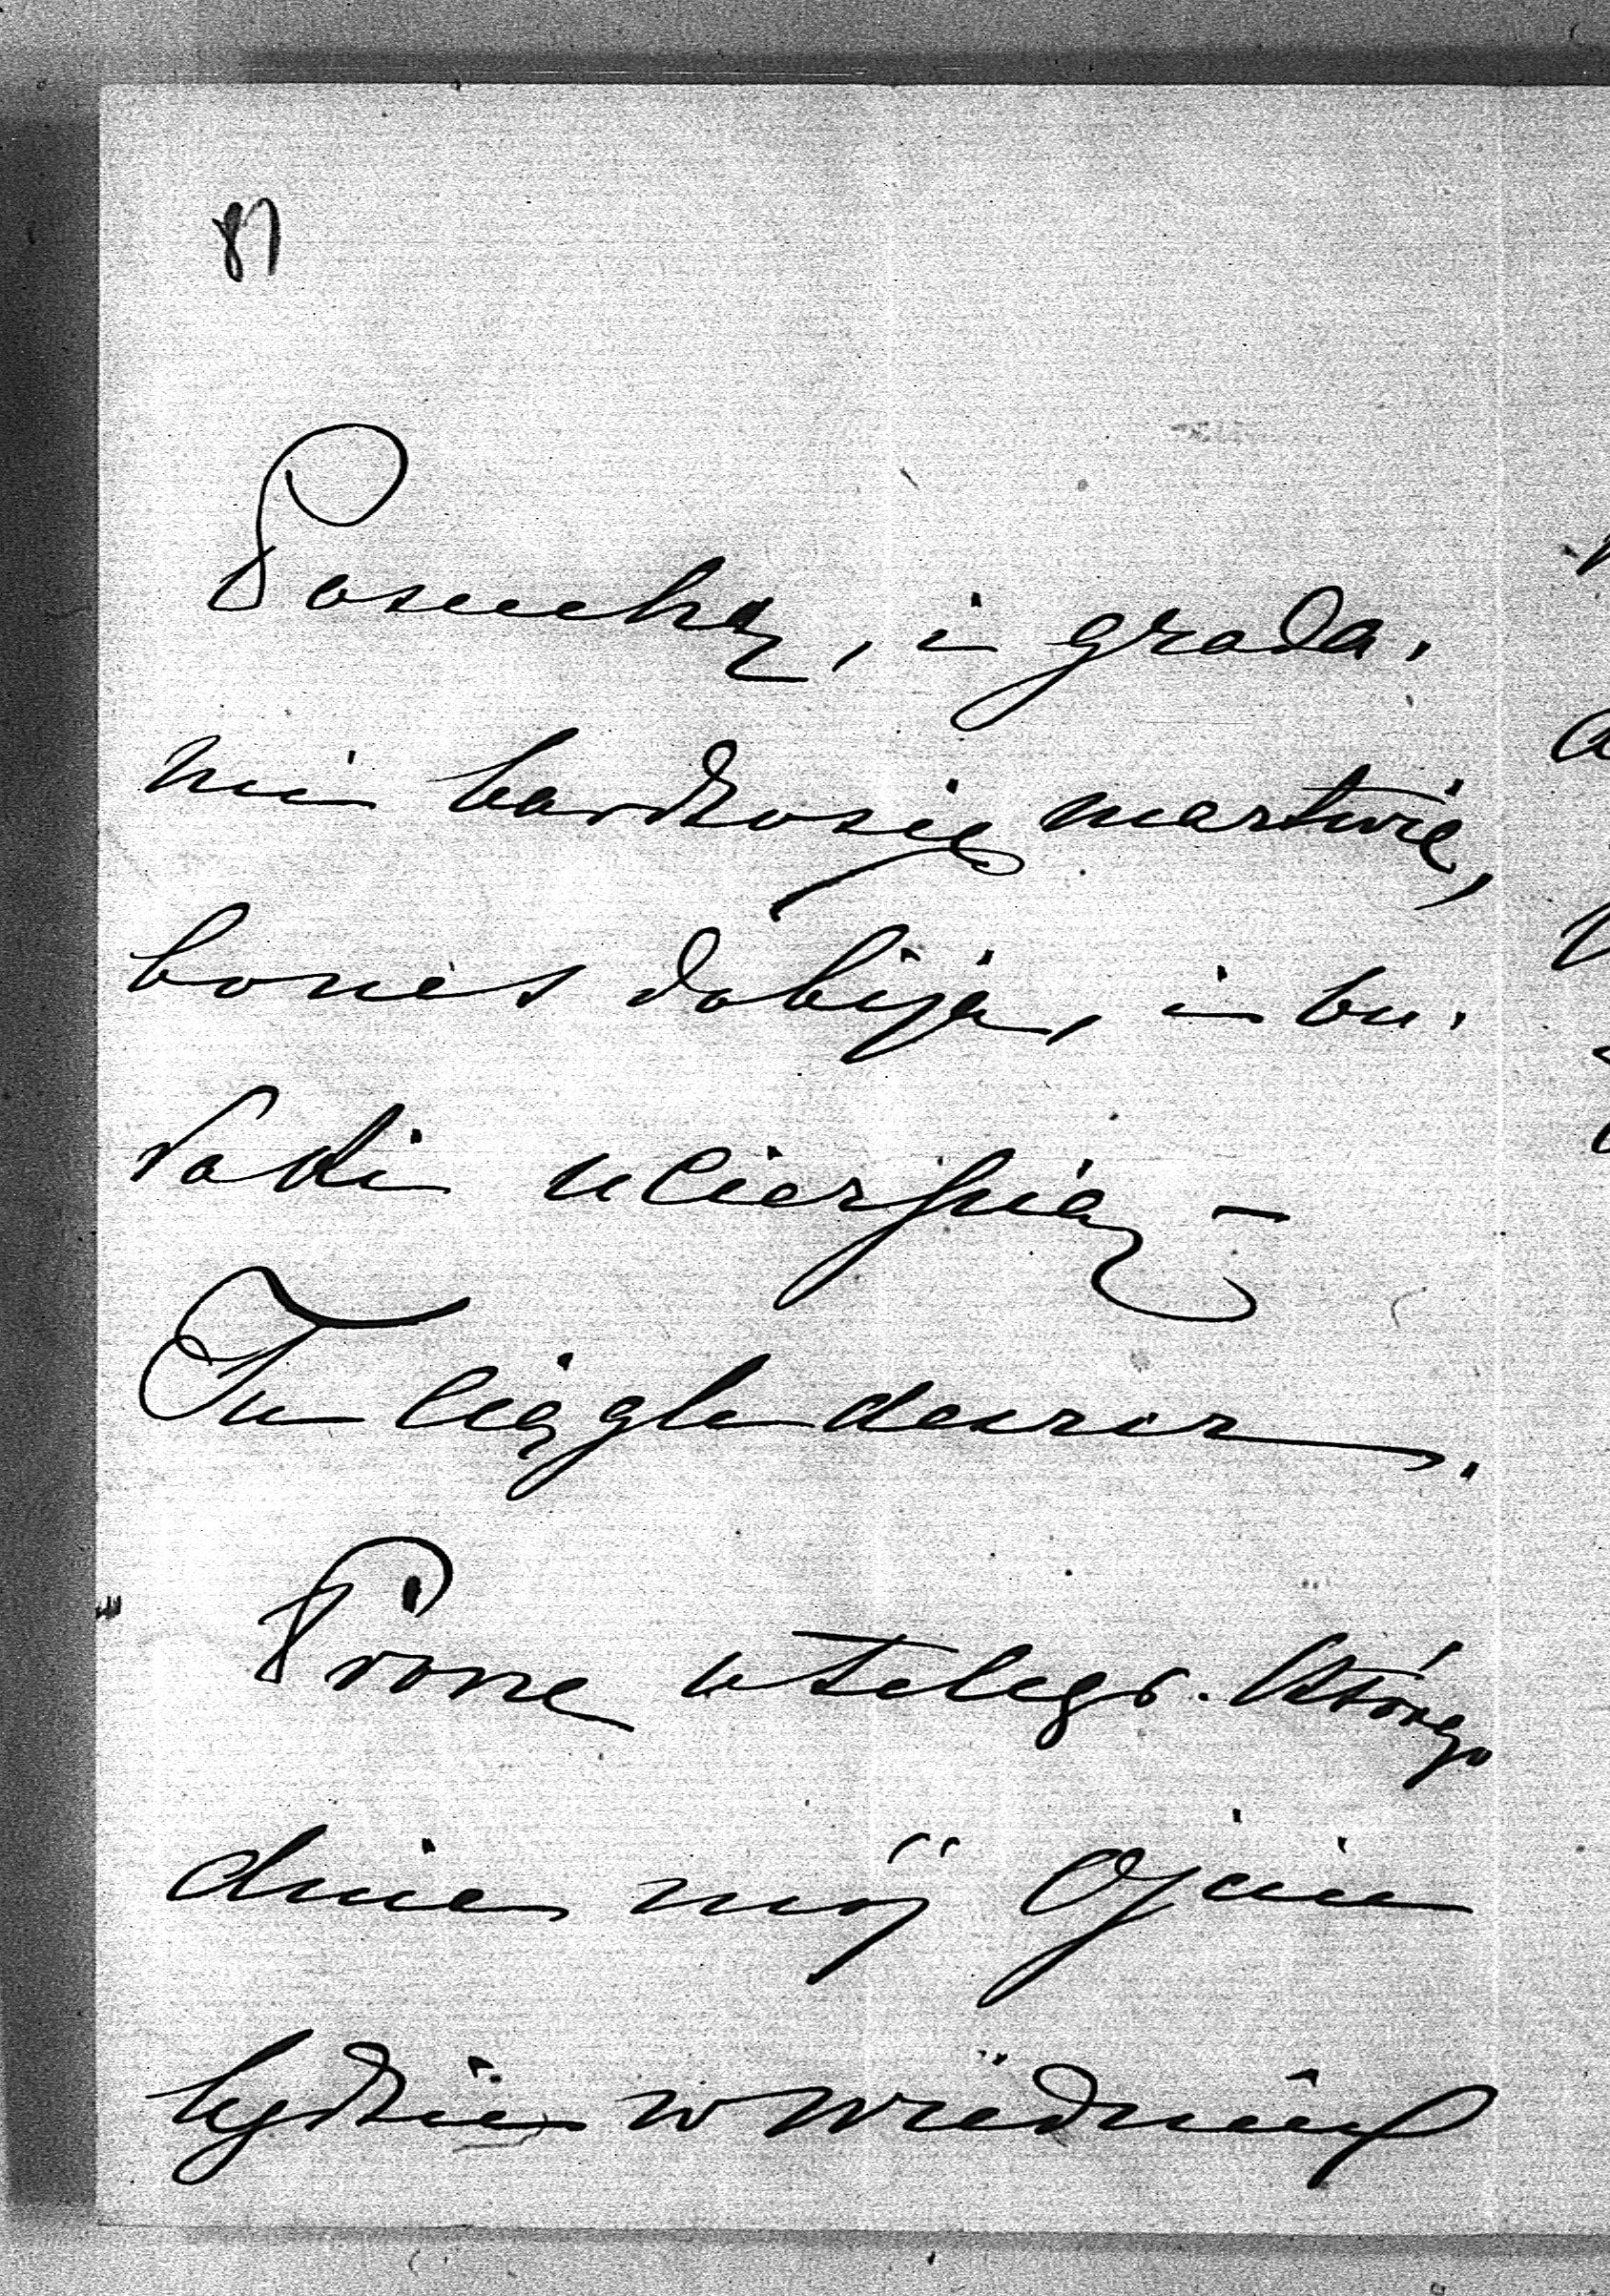 87
Posuchą, i grada.
mi bardzo się martwię,
bo nieś dobija, i bu.
raki ucierpią –
Tu ciągle deszcz.
Proszę o telegr. którego
dnia mój Ojciec
będzie w Wiedniu